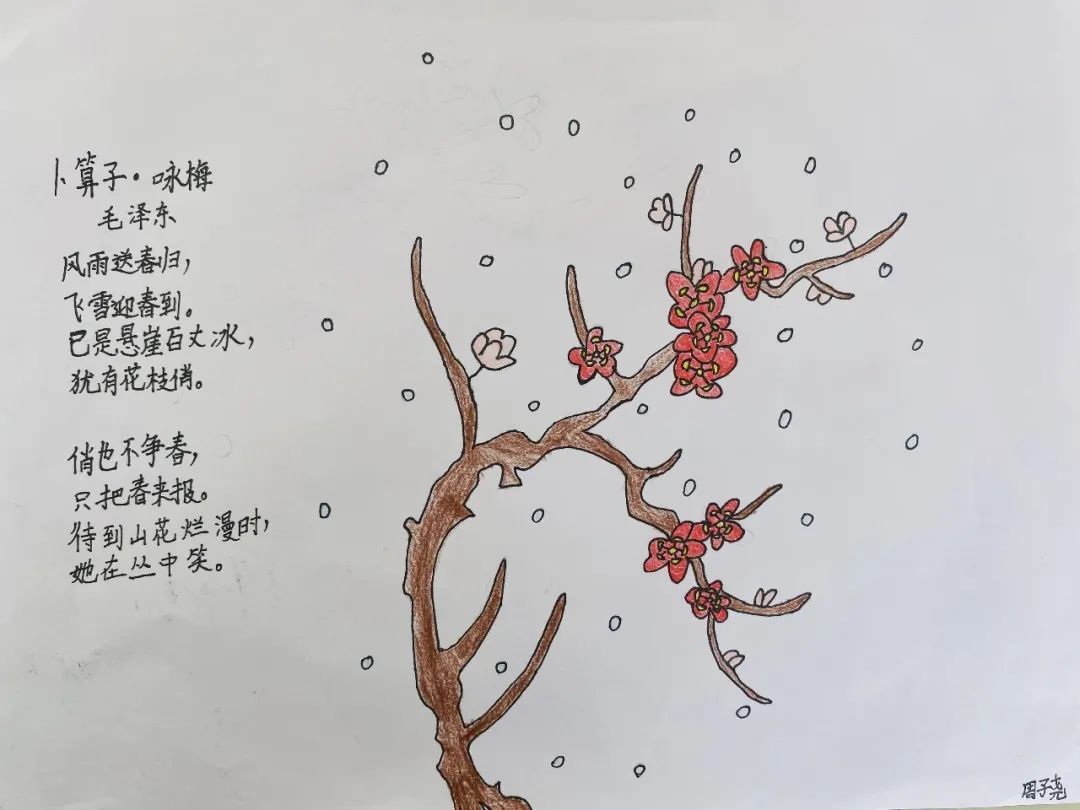 卜算子·咏梅
毛泽东
风雨送春归，
飞雪迎春到。
已是悬崖百丈冰，
犹有花枝俏。
俏也不争春，
只把春来报。
待到山花烂漫时，
她在丛中笑。
周子尧